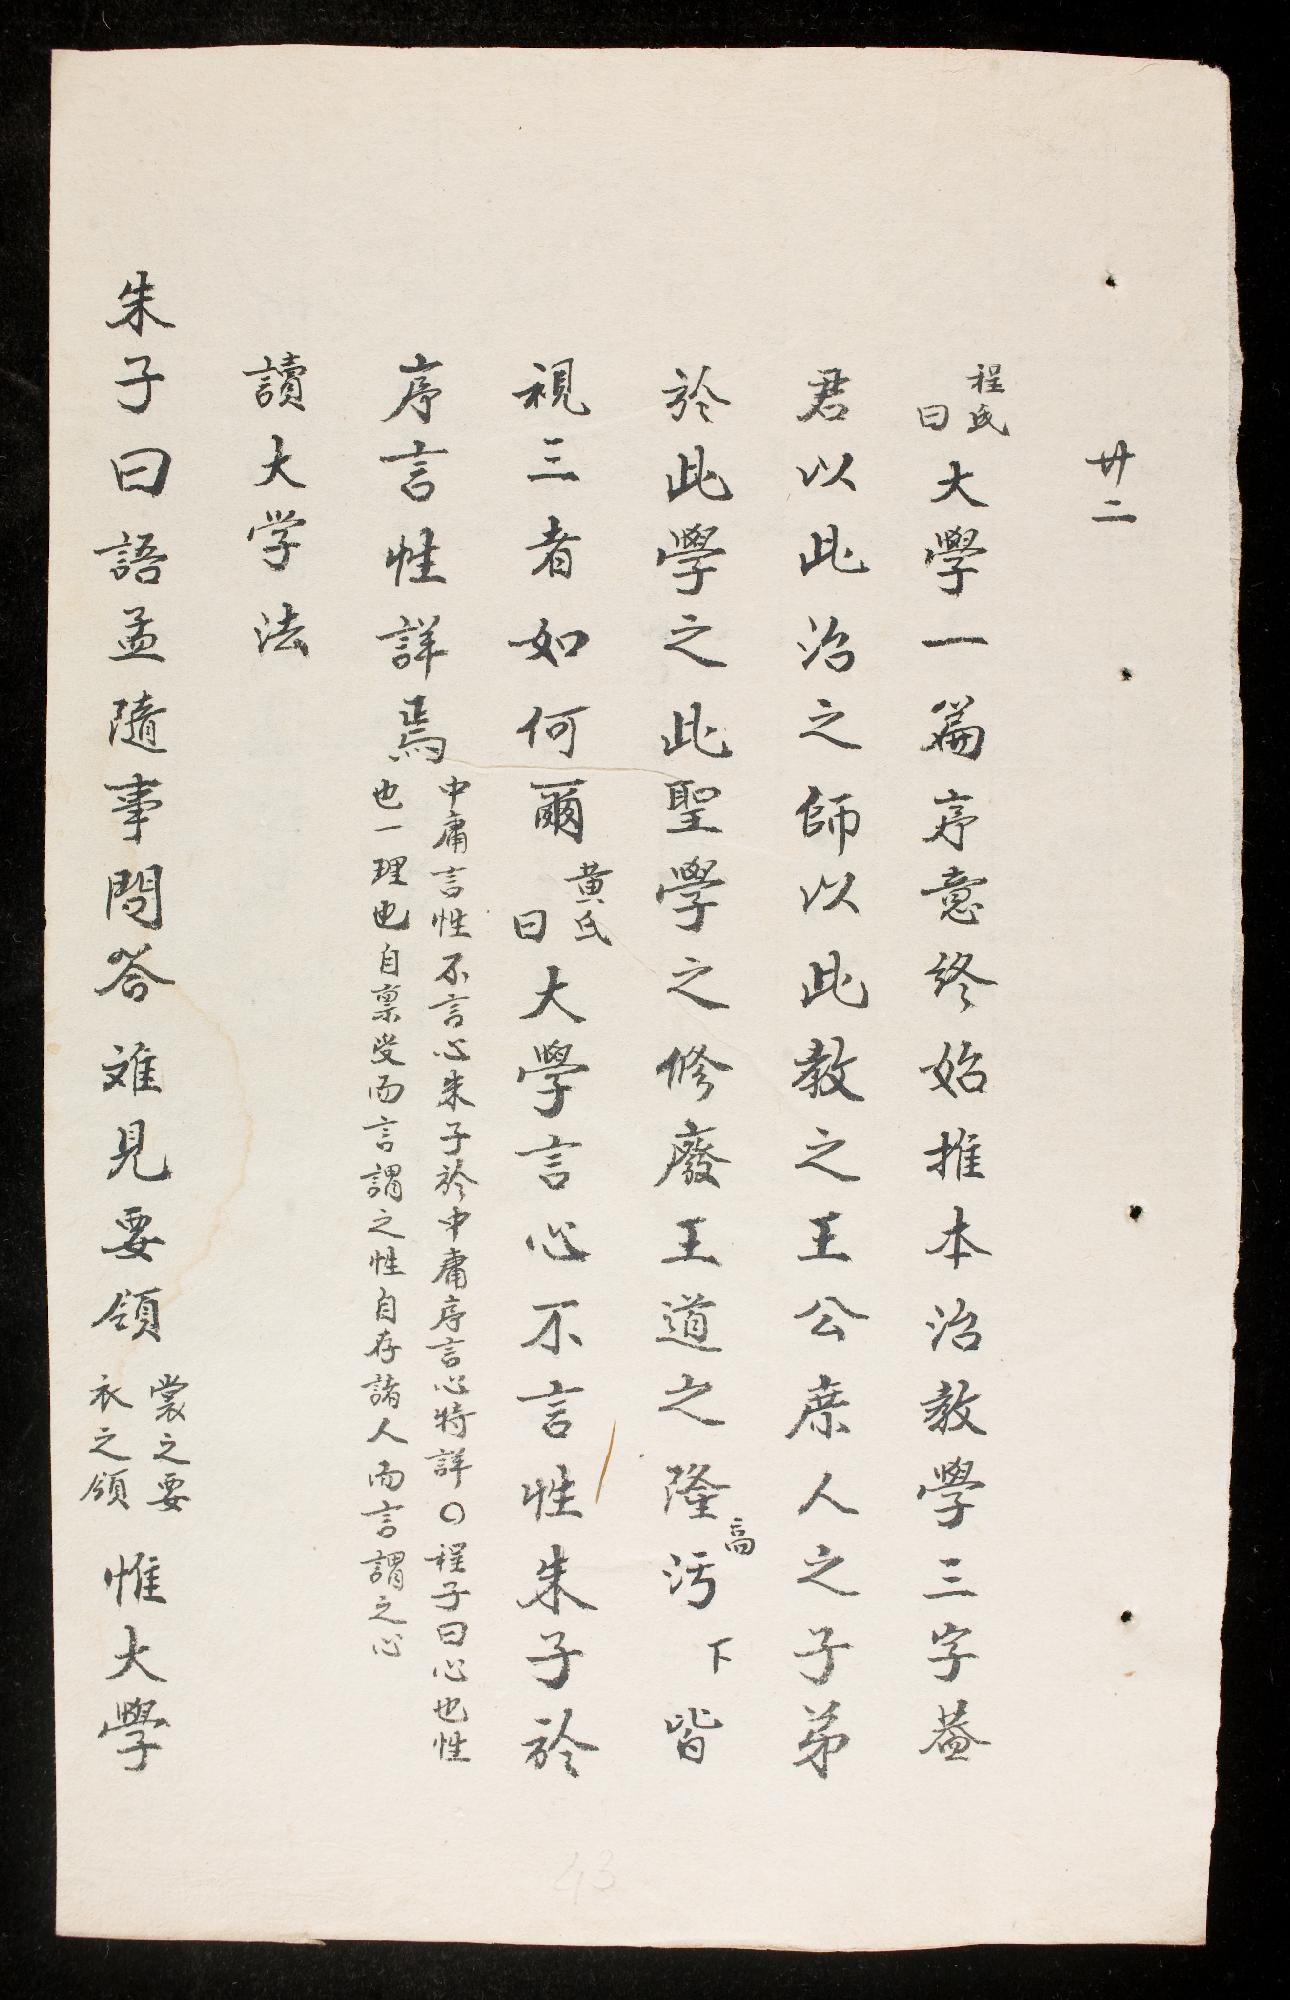 廿二
程氏曰大學一篇序意終始推本治教學三字蓋
君以此治之師以此教之王公庶人之子弟
於此學之此聖學之修廢王道之隆高污下皆
視三者如何爾黄氏曰大學言心不言性朱子於
序言性詳焉
中庸言性不言心朱子於中庸序言心特詳〇程子曰心也性
也一理也自稟受而言謂之性自存諸人而言謂之心
讀大学法
朱子曰語孟隨事問答难見要領
裳之要
衣之領
惟大學
43